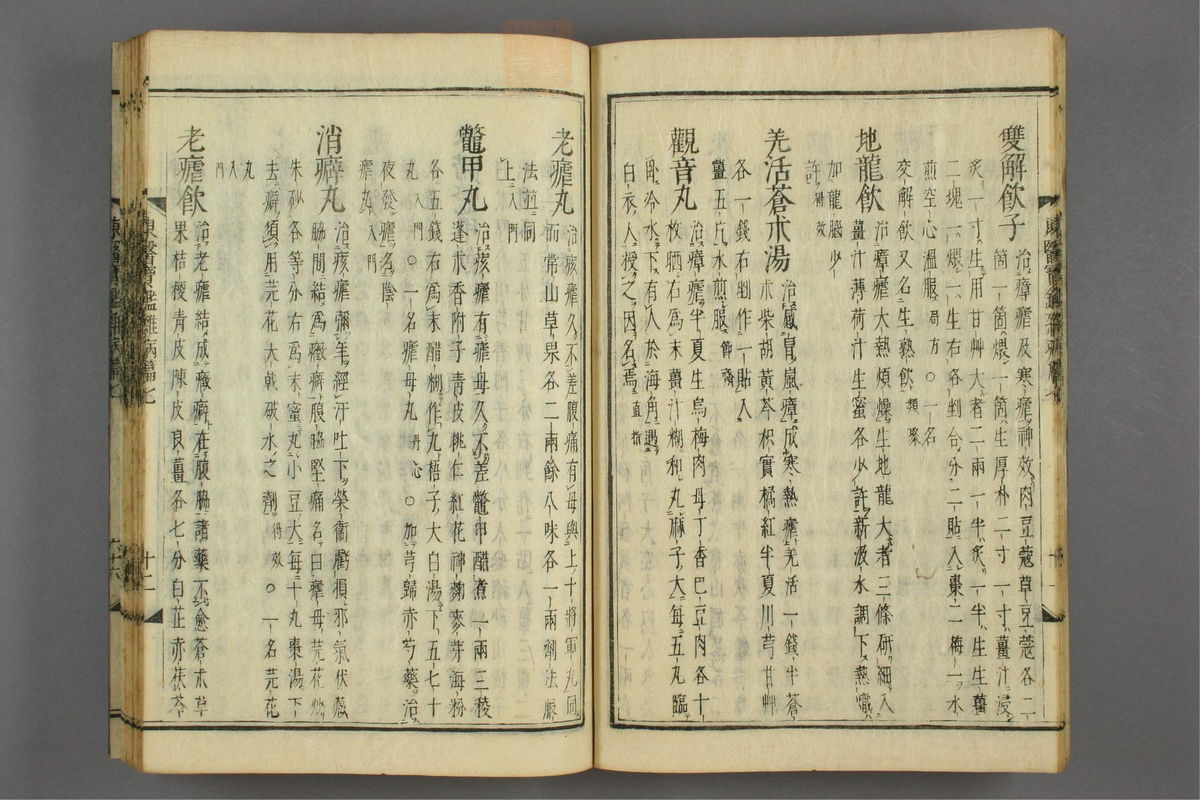 雙解飮子
治瘴瘧及寒瘧神效肉豆蔲草豆蔲各二
箇一箇煨一箇生厚朴二寸一寸薑汁浸
炙一寸生用甘艸大者二兩一半炙一半生生薑
二塊一煨一生右各剉合分二貼入棗二梅一水
煎空心溫服局方○一名
交解飮又名生熟飮類聚
地龍飮
治瘴瘧大熱煩燥生地龍大者三條研細入
薑汁薄荷汁生蜜各少許新汲水調下熱熾
加龍腦少
許得效
羌活蒼朮湯
治感冒嵐瘴成寒熱瘧羌活一錢半蒼
朮柴胡黃芩枳實橘紅半夏川芎甘艸
各一錢右剉作一貼入
薑五片水煎服節齋
觀音丸
治瘴瘧半夏生烏梅肉母丁香巴豆肉各十
枚晒右爲末薑汁糊和丸麻子大每五丸臨
臥冷水下有人於海角遇
白衣人授之因名焉直指
老瘧丸
治痎瘧久不差腹痛有母與上十將軍丸同
而常山草果各二兩餘八味各一兩劑法服
法並同
上入門
鼈甲丸
治痎瘧有瘧母久不差鼈甲醋煮一兩三稜
蓬朮香附子靑皮桃仁紅花神麴麥芽海粉
各五錢右爲末醋糊作丸梧子大白湯下五七十
丸入門○一名瘧母丸丹心○加芎歸赤芍藥治
夜發瘧名陰
瘧丸入門
消癖丸
治痎瘧彌年經汗吐下榮衛虧損邪氣伏藏
脇間結爲癥癖腹脇堅痛名曰瘧母芫花炒
朱砂各等分右爲末蜜丸小豆大每十丸棗湯下
去癖須用芫花大戟破水之劑得效○一名芫花
丸入
門
老瘧飮
治老瘧結成癥癖在腹脇諸藥不愈蒼朮草
果桔梗靑皮陳皮良薑各七分白芷赤茯苓
東醫寶鑑雜病篇七
十二